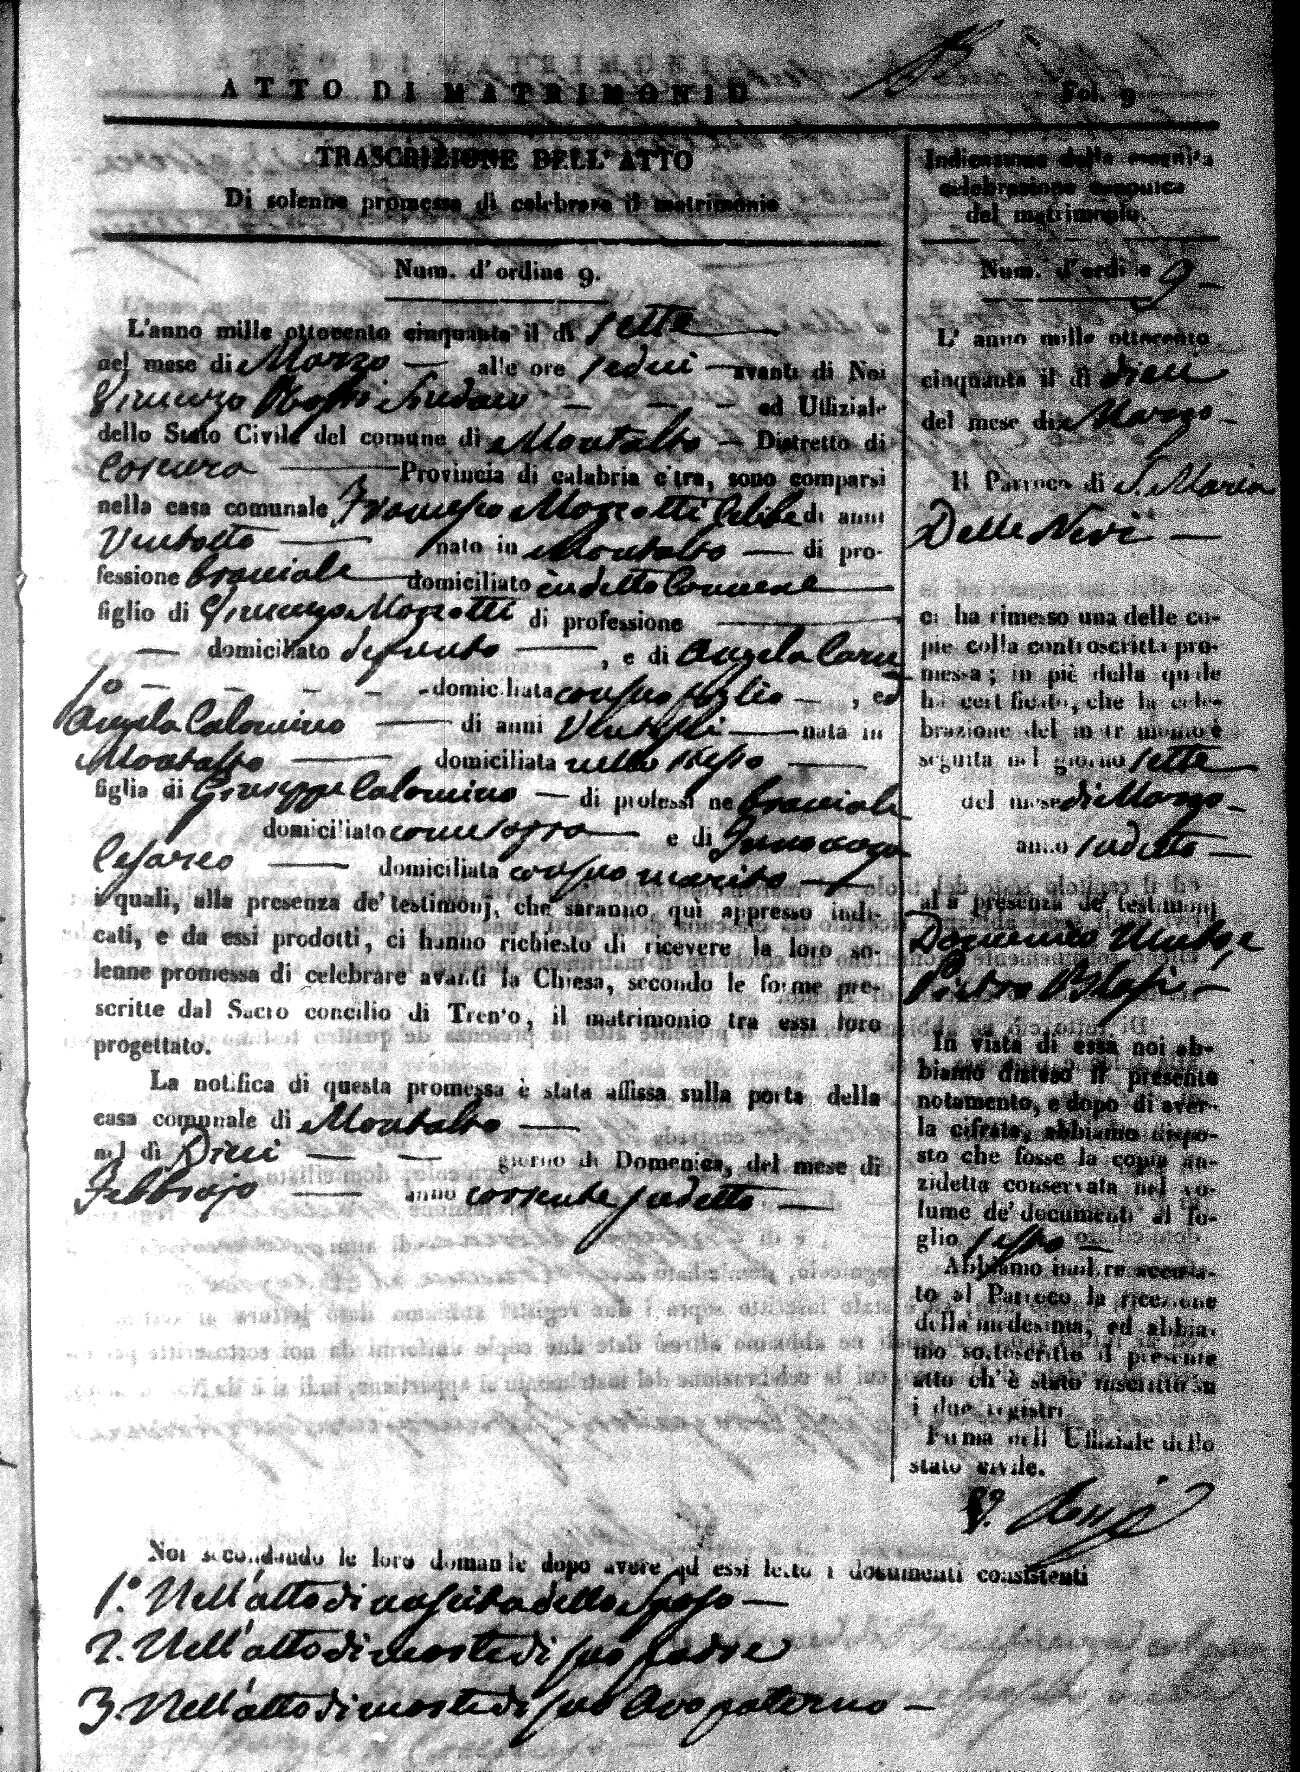 ATTO DI MATRIMONIO
Fol. 9
TRASCRIZIONE DELL' ATTO
Di solenne promessa di celebrare il matrimonio
Num. d'ordine 9.
L'anno mille ottocento cinquanta il dì sette
nel mese di Marzo — alle ore sedici — avanti di Noi
Vincenzo Rossi Sindaco — — — ed Uffiziale
dello Stato Civile del comune di Montalto — Distretto di
Cosenza — Provincia di calabria citra, sono comparsi
nella casa comunale Francesco Mazzotti Celibe di anni
Ventotto — nato in Montalto — di pro-
fessione bracciale domiciliato in detto Comune
figlio di Vincenzo Mazzotti di professione —
— domiciliato defunto —, e di Angela
— — — — domiciliata con suo figlio —, ed
Angela Calomino — di anni — nata in
Montalto — domiciliata nello stesso —
figlia di Giuseppe Calomino — di professi ne bracciale
domiciliato come sopra — e di Innocenza
Cesareo — domiciliata con suo marito —
i quali, alla presenza de' testimonj, che saranno qui appresso indi-
cati, e da essi prodotti, ci hanno richiesto di ricevere la loro so-
lenne promessa di celebrare avanti la Chiesa, secondo le forme pre-
scritte dal Sacro concilio di Trento, il matrimonio tra essi loro
progettato.
La notifica di questa promessa è stata affissa sulla porta della
casa comunale di Montalto —
nel dì Dieci — — giorno di Domenica, del mese di
Febbrajo — anno corrente sudetto —
Noi secondando le loro domande dopo avere ad essi letto i documenti consistenti
1.° Nell'atto di nascita dello Sposo —
2. Nell'atto di morte di suo padre
3. Nell'atto di morte di suo Avo paterno —
Indicazione della seguita
celebrazione canonica
del matrimonio.
Num. d'ordine 9 —
L' anno mille ottocento
cinquanta il dì dieci
del mese di Marzo —
Il Parroco di S. Maria
Delle Nevi —
ci ha rimesso una delle co-
pie colla controscritta pro-
messa; in piè della quale
ha certificato, che la cele-
brazione del matrimonio è
seguita nel giorno sette
del mese di Marzo —
anno sudetto —
alla presenza de' testimonj
Domenico e
Pietro Blasi —
In vista di essa noi ab-
biamo disteso il presente
notamento, e dopo di aver-
la cifrata, abbiamo dispo-
sto che fosse la copia an-
zidetta conservata nel vo-
lume de' documenti al fo-
glio sesto —
Abbiamo inoltre accusa-
to al Parroco la ricezione
della medesima, ed abbia-
mo sottoscritto il presente
atto ch' è stato inscritto su
i due registri
Firma dell' Uffiziale dello
stato civile.
V. Rossi